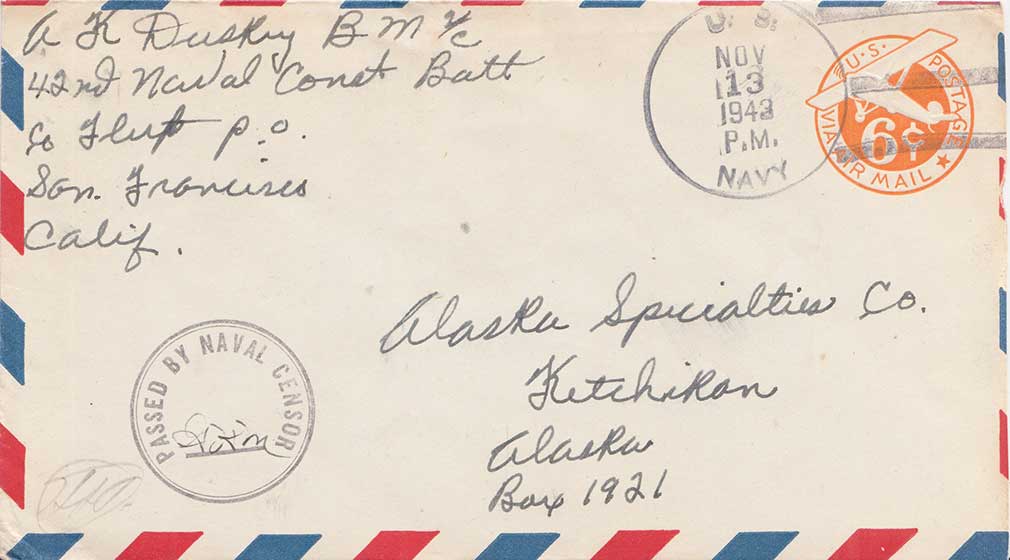 A K Duskey B M 2/c
42nd Naval Const Batt
c/o Fleet P.O.
San. Francisco
Calif.
U. S.
NOV
13
1943
P.M.
NAVY
U.S. POSTAGE
6¢
VIA AIR MAIL
Alaska Specialties Co.
Ketchikan
Alaska
Box 1921
PASSED BY NAVAL CENSOR